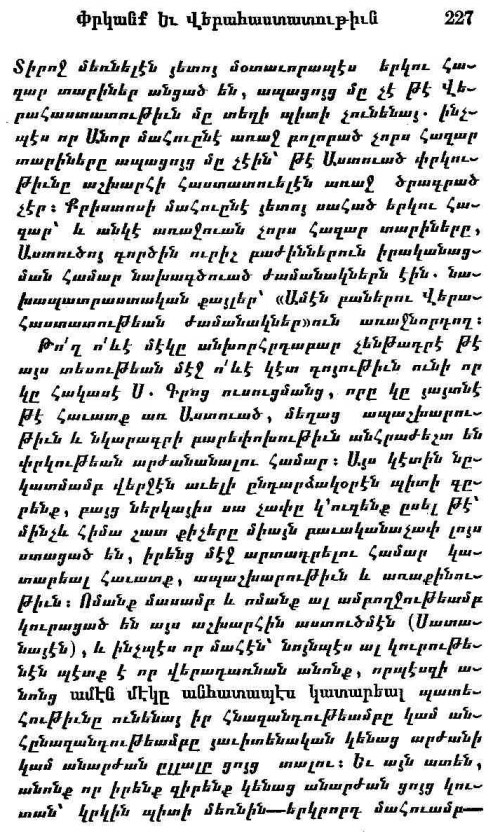 Փրկանք Եւ Վերահաստատութիւն 227
Տիրոջ մեռնելէն յետոյ մօտաւորապէս երկու հա-
զար տարիներ անցած են, ապացոյց մը չէ թէ Վե-
րահաստատութիւն մը տեղի պիտի չունենայ. ինչ-
պէս որ Անոր մահուընէ առաջ բոլորած չորս հազար
տարիները ապացոյց մը չէին՝ թէ Աստուած փրկու-
թիւնը աշխարհի հաստատուելէն առաջ ծրագրած
չէր։ Քրիստոսի մահուընէ յետոյ սահած երկու հա-
զար՝ և անկէ առաջուան չորս հազար տարիները,
Աստուծոյ գործին ուրիշ բաժիններուն իրականաց-
ման համար նախագծուած ժամանակներն էին. նա-
խապատրաստական քայլեր՝ «Ամէն բաներու Վերա-
հաստատութեան ժամանակներ»ուն առաջնորդող։
Թո՛ղ ո՛ևէ մէկը անխորհրդաբար չենթադրէ թէ
այս տեսութեան մէջ ո՛ևէ կէտ գոյութիւն ունի որ
կը հակասէ Ս. Գրոց ուսուցմանց, որը կը յայտնէ
թէ հաւատք առ Աստուած, մեղաց ապաշխարու-
թիւն և նկարագրի բարեփոխութիւն անհրաժեշտ են
փրկութեան արժանանալու համար։ Այս կէտին նը-
կատմամբ վերջէն աւելի ընդարձակօրէն պիտի գը-
րենք, բայց ներկայիս սա չափը կ՚ուզենք ըսել թէ՝
մինչև հիմա շատ քիչերը միայն բաւականաչափ լոյս
ստացած են, իրենց մէջ արտադրելու համար կա-
տարեալ հաւատք, ապաշխարութիւն և առաքինու-
թիւն։ Ոմանք մասամբ և ոմանք ալ ամբողջութեամբ
կուրացած են այս աշխարհին աստուծմէն (Սատա-
նայէն), և ինչպէս որ մահէն՝ նոյնպէս ալ կուրութե-
նէն պէտք է որ վերադառնան անոնք, որպէսզի ա-
նոնց ամէն մէկը անհատապէս կատարեալ պատե-
հութիւնը ունենայ իր հնազանդութեամբը կամ ան-
հընազանդութեամբը յաւիտենական կենաց արժանի
կամ անարժան ըլլալը ցոյց տալու։ Եւ այն ատեն,
անոնք որ իրենք զիրենք կենաց անարժան ցոյց կու-
տան՝ կրկին պիտի մեռնին—երկրորդ մահուամբ—